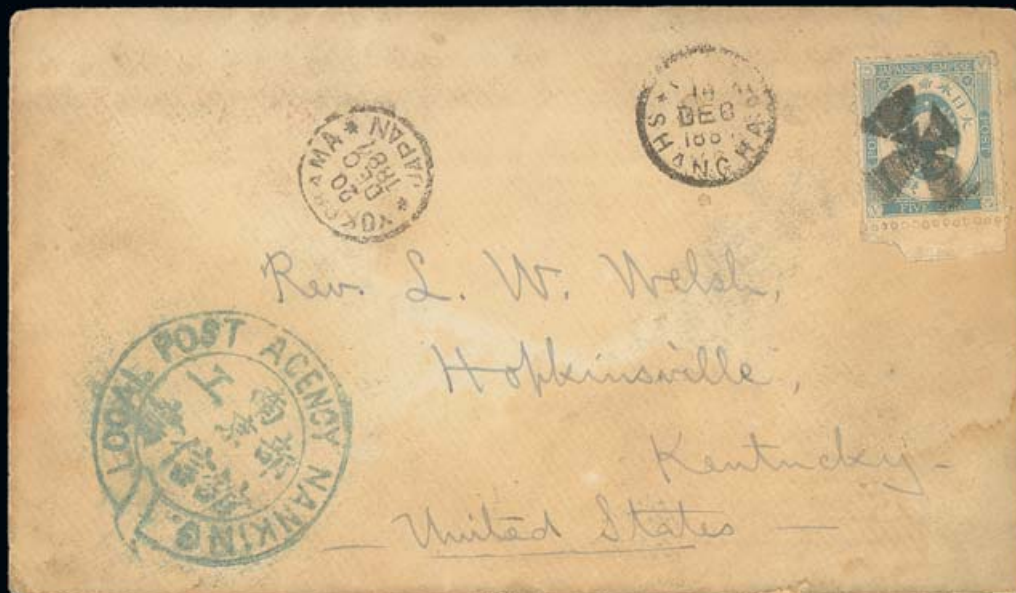 YOKOHAMA
JAPAN
20
DEC
1887
SHANGHAI
DEC
188
JAPANESE EMPIRE
POST
FIVE
Rev. L. W. Welsh,
Hopkinsville,
Kentucky-
— United States —
LOCAL POST AGENCY NANKING